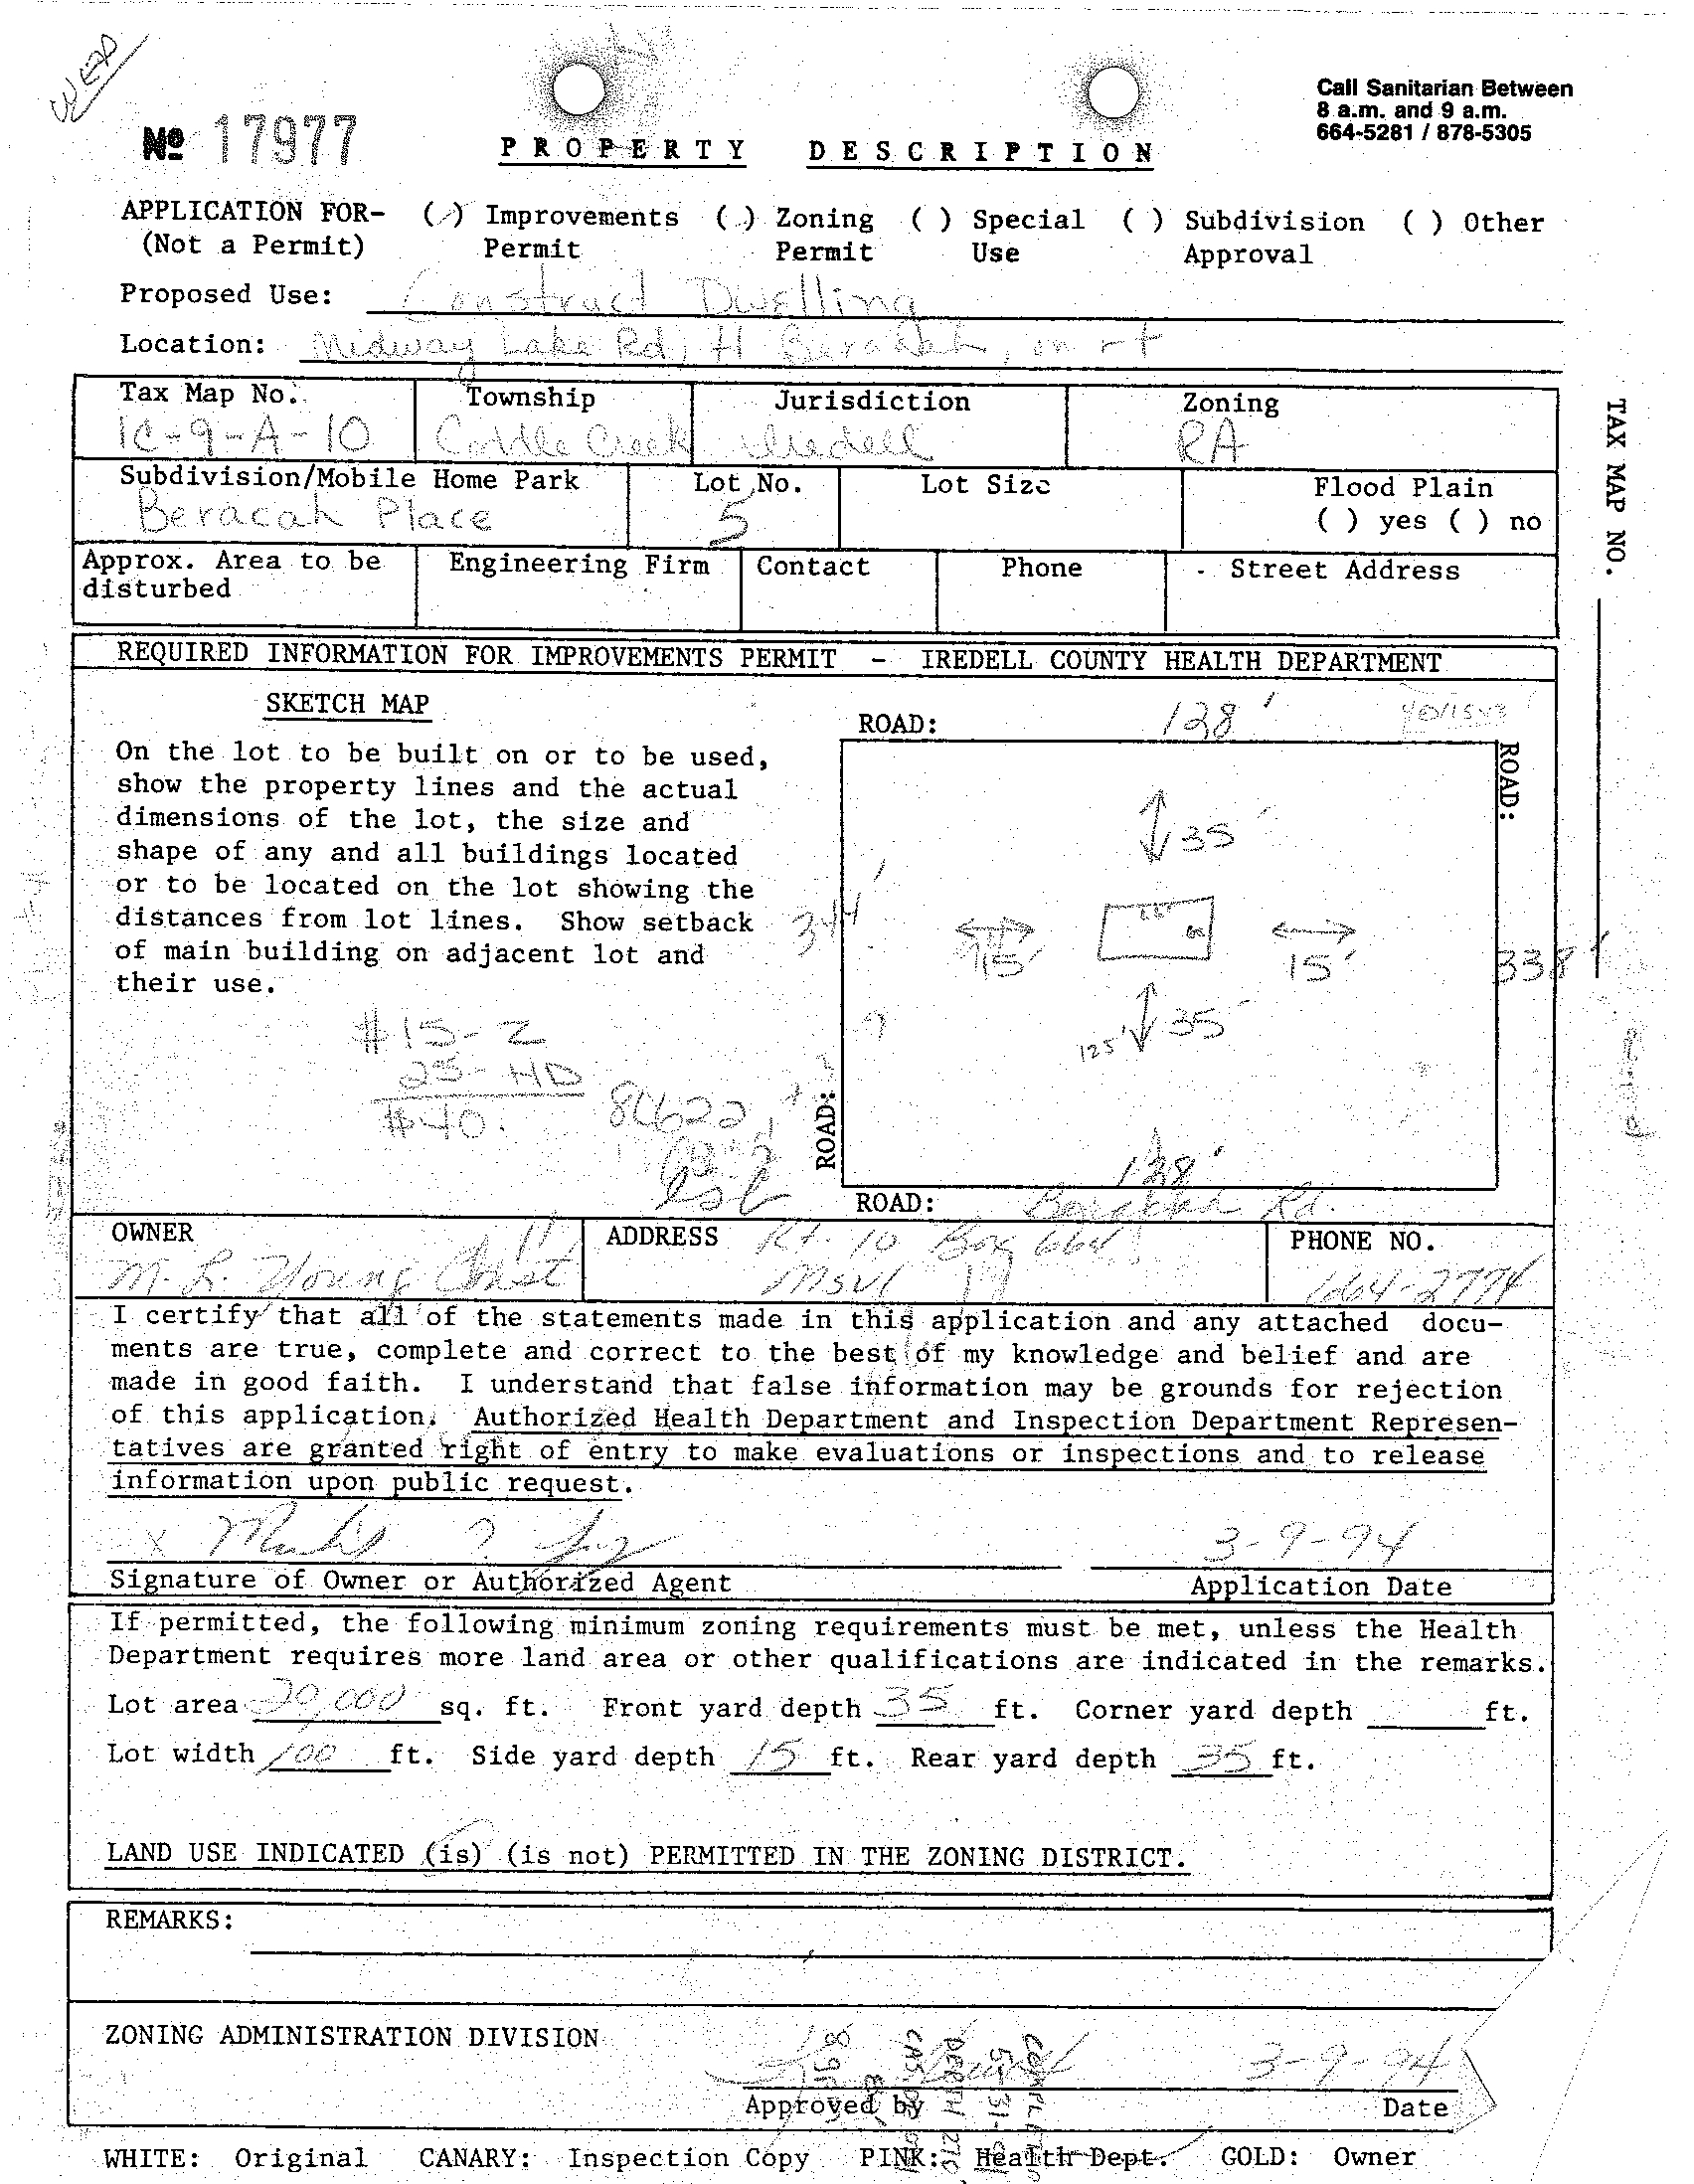 WEP
Call Sanitarian Between
8 a.m. and 9 a.m.
664-5281 / 878-5305
№ 17977
PROPERTY DESCRIPTION
APPLICATION FOR- (✓) Improvements ( ) Zoning ( ) Special ( ) Subdivision ( ) Other
(Not a Permit) Permit Permit Use Approval
Proposed Use: Construct Dwelling
Location: Midway Lake Rd, tl Beracah, on rt
Tax Map No. Township Jurisdiction Zoning
1C-9-A-10 Coddle Creek Iredell RA
Subdivision/Mobile Home Park Lot No. Lot Size Flood Plain
Beracah Place 5 ( ) yes ( ) no
Approx. Area to be Engineering Firm Contact Phone Street Address
disturbed
TAX MAP NO.
REQUIRED INFORMATION FOR IMPROVEMENTS PERMIT - IREDELL COUNTY HEALTH DEPARTMENT
SKETCH MAP
ROAD: 128'
On the lot to be built on or to be used,
show the property lines and the actual
dimensions of the lot, the size and
shape of any and all buildings located
or to be located on the lot showing the
distances from lot lines. Show setback
of main building on adjacent lot and
their use.
ROAD:
35'
344'
15'
15'
338'
35'
125'
#15-Z
25-HD
#40.
ROAD:
128'
ROAD: Rd.
OWNER ADDRESS Rt. 10 Box 664 PHONE NO.
M. L. Young Const Msvl 664-2774
I certify that all of the statements made in this application and any attached docu-
ments are true, complete and correct to the best of my knowledge and belief and are
made in good faith. I understand that false information may be grounds for rejection
of this application. Authorized Health Department and Inspection Department Represen-
tatives are granted right of entry to make evaluations or inspections and to release
information upon public request.
X 3-9-94
Signature of Owner or Authorized Agent Application Date
If permitted, the following minimum zoning requirements must be met, unless the Health
Department requires more land area or other qualifications are indicated in the remarks.
Lot area 20,000 sq. ft. Front yard depth 35 ft. Corner yard depth ft.
Lot width 100 ft. Side yard depth 15 ft. Rear yard depth 35 ft.
LAND USE INDICATED (is) (is not) PERMITTED IN THE ZONING DISTRICT.
REMARKS:
ZONING ADMINISTRATION DIVISION
3-9-94
Approved by Date
WHITE: Original CANARY: Inspection Copy PINK: Health Dept. GOLD: Owner